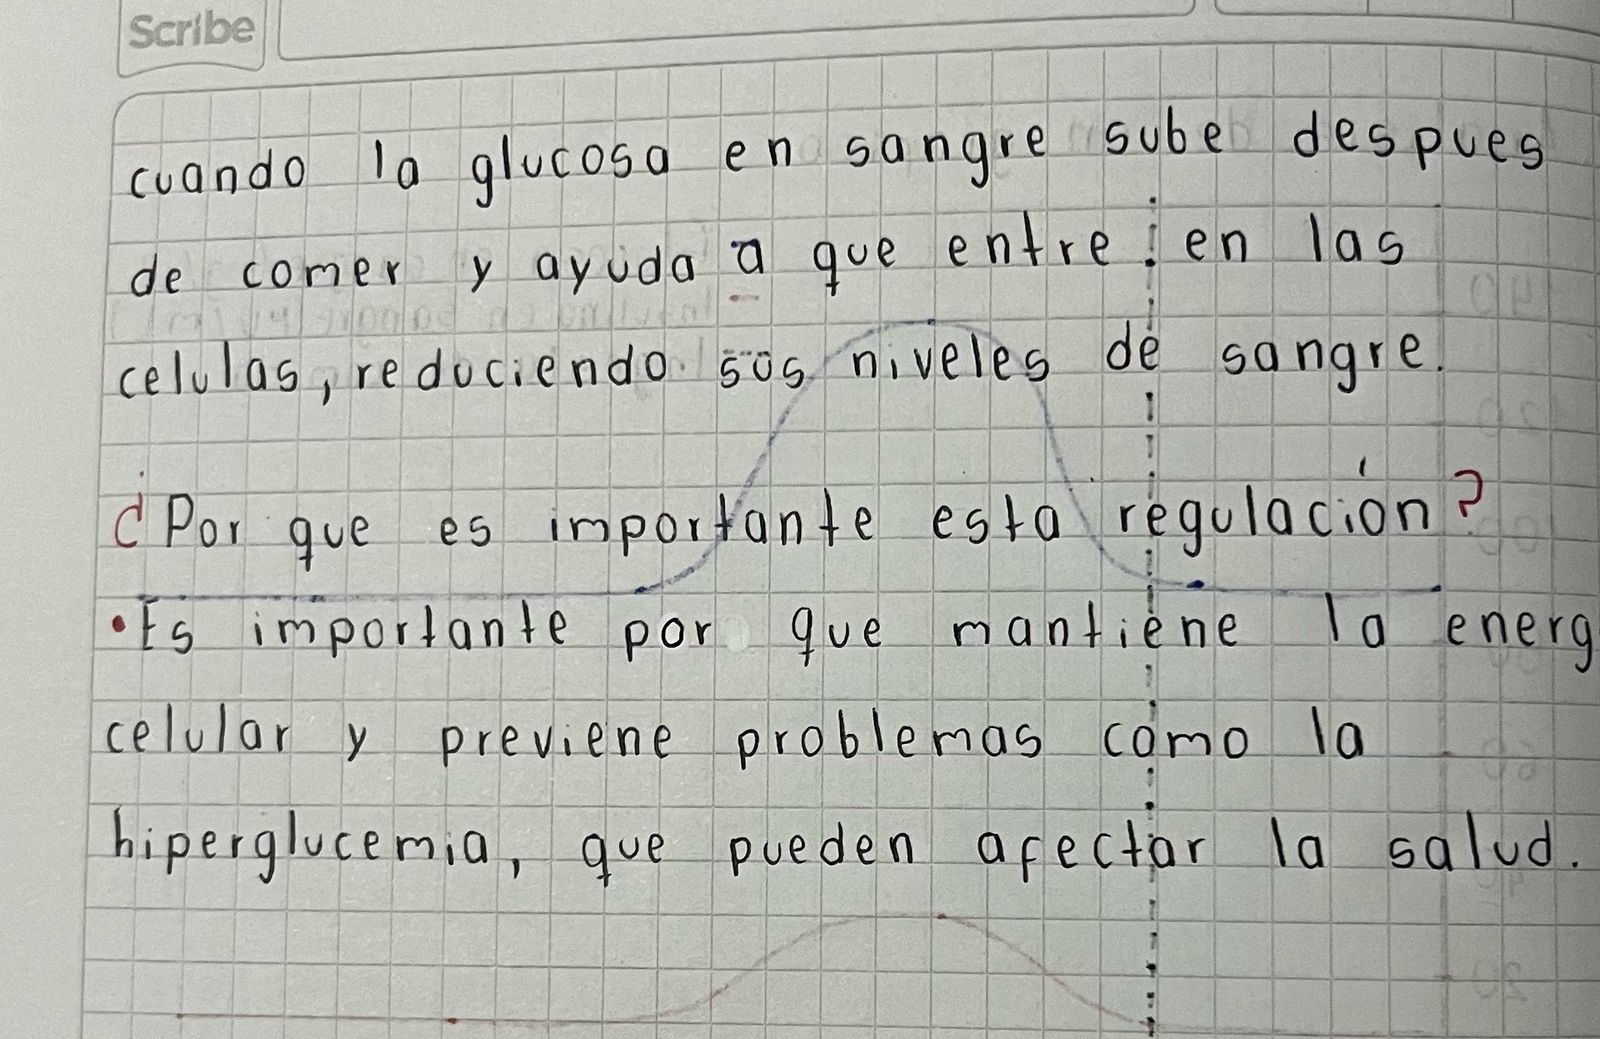 Scribe
cuando la glucosa en sangre sube despues
de comer y ayuda a que entre en las
celulas, reduciendo sus niveles de sangre.
¿Por que es importante esta regulación?
•Es importante por que mantiene la energ
celular y previene problemas como la
hiperglucemia, que pueden afectar la salud.